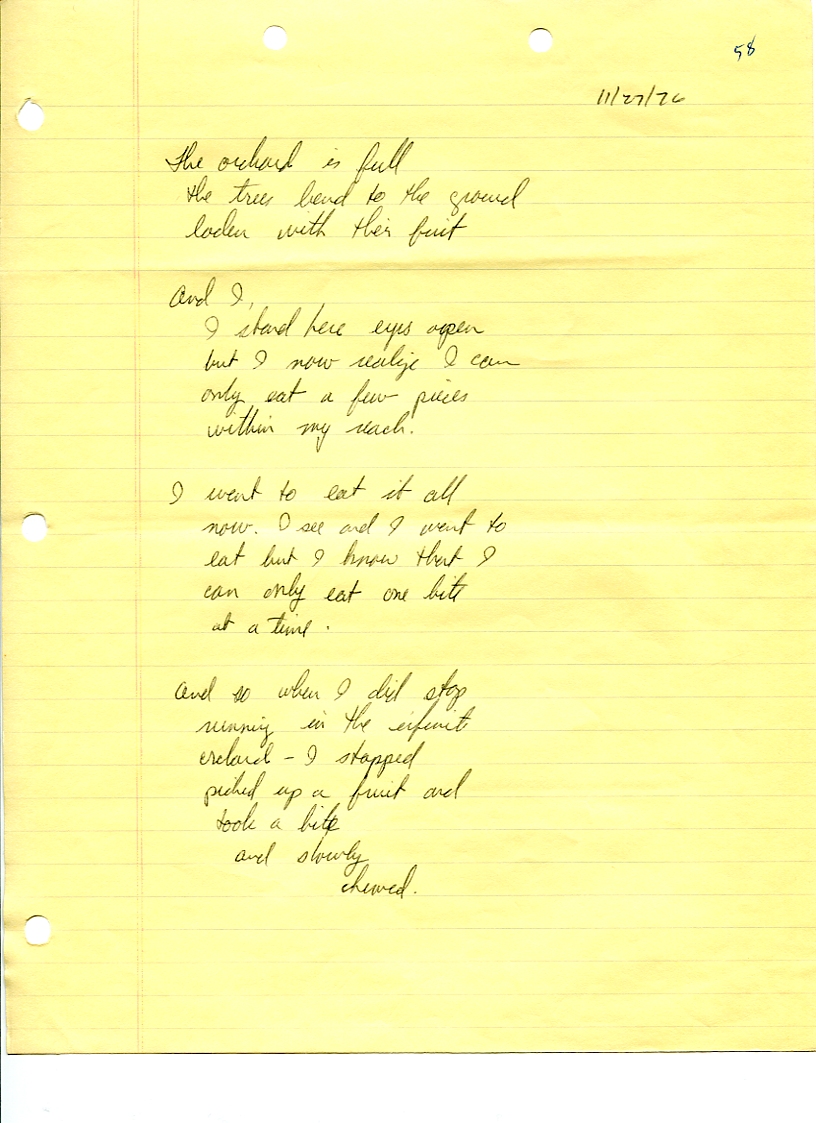 58
11/27/76
The orchard is full
the trees bend to the ground
loden with their fruit
And I,
I stand here eyes open
but I now realize I can
only eat a few pieces
within my reach.
I want to eat it all
now. I see and I want to
eat but I know that I
can only eat one bite
at a time.
And so when I did stop
running in the infinite
orchard - I stopped
picked up a fruit and
took a bite
and slowly
chewed.